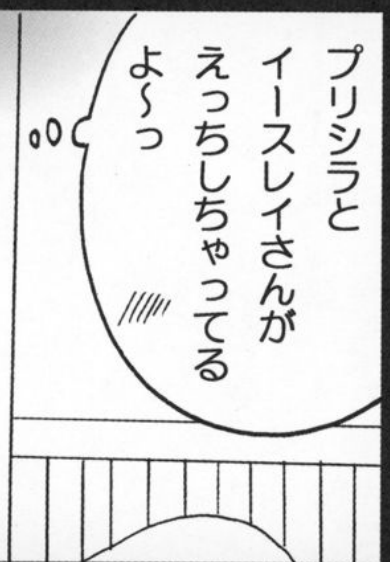 プリシラと
イースレイさんが
えっちしちゃってる
よ～っ